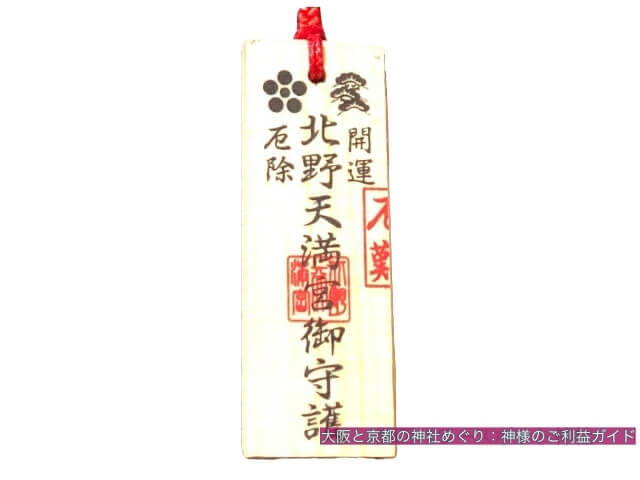 開運
北野天満宮御守護
厄除
大阪と京都の神社めぐり：神様のご利益ガイド